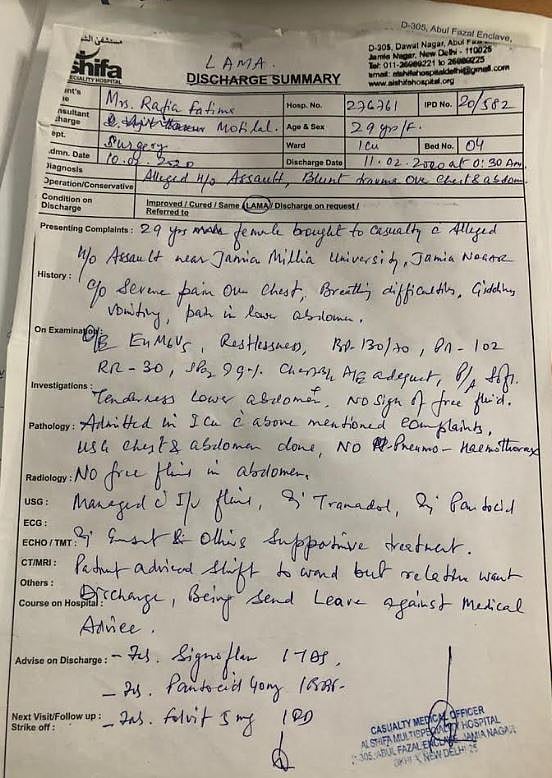 D-305, Abul Fazal Enclave,
مستشفى الشفا
shifa
SPECIALITY HOSPITAL
D-305, Dawat Nagar, Abul Fa
Jamia Nagar, New Delhi - 110025
Tel: 011-26989221 to 26989225
email: alshifahospitaldelhi@gmail.com
www.alshifahospital.org
LAMA
DISCHARGE SUMMARY
Mrs. Rafia Fatima
Hosp. No. 276761 IPD No. 20/582
Motilal.
Age & Sex 29 yrs/F.
Surgery
Ward ICU Bed No. 04
dmn. Date 10.02.2020
Discharge Date 11.02.2020 at 0:30 Am
Diagnosis Alleged H/o Assault, Blunt trauma Over Chest & abdomen
Operation/Conservative
Condition on
Discharge
Improved / Cured / Same / LAMA / Discharge on request /
Referred to
Presenting Complaints : 29 yrs female brought to casualty c Alleged
H/o Assault near Jamia Millia University, Jamia Nagar
History : c/o Severe pain over chest, Breathing difficulties, Giddiness
Vomiting, pain in lower abdomen.
On Examination: O/E E4M6V5, Restlessness, BP-130/70, PR-102
RR-30, SPO2 99% Chest B/L AE adequet, P/A Soft.
Investigations : Tenderness Lower abdomen, NO Sign of free fluid.
Pathology : Admitted in ICU c above mentioned complaints,
USG chest & abdomen done, NO Pneumo-Haemothorax
Radiology : No free fluid in abdomen.
USG : Managed c I/V fluid, Inj Tramadol, Inj Pantocid
ECG :
ECHO / TMT : Inj Emset & Others Supportive treatment.
CT/MRI : Patient adviced shift to ward but relative want
Others : Discharge, Being Send Leave against Medical
Course on Hospital : Advice.
Advise on Discharge : - Tab. Signoflam 1 TDS,
- Tab. Pantocid 40mg 1 BBF-
Next Visit/Follow up : - Tab. Folvit 5 mg 1 OD
Strike off :
CASUALTY MEDICAL OFFICER
ALSHIFA MULTISPECIALITY HOSPITAL
D-305, ABUL FAZAL ENCLAVE, JAMIA NAGAR
OKHLA, NEW DELHI-25